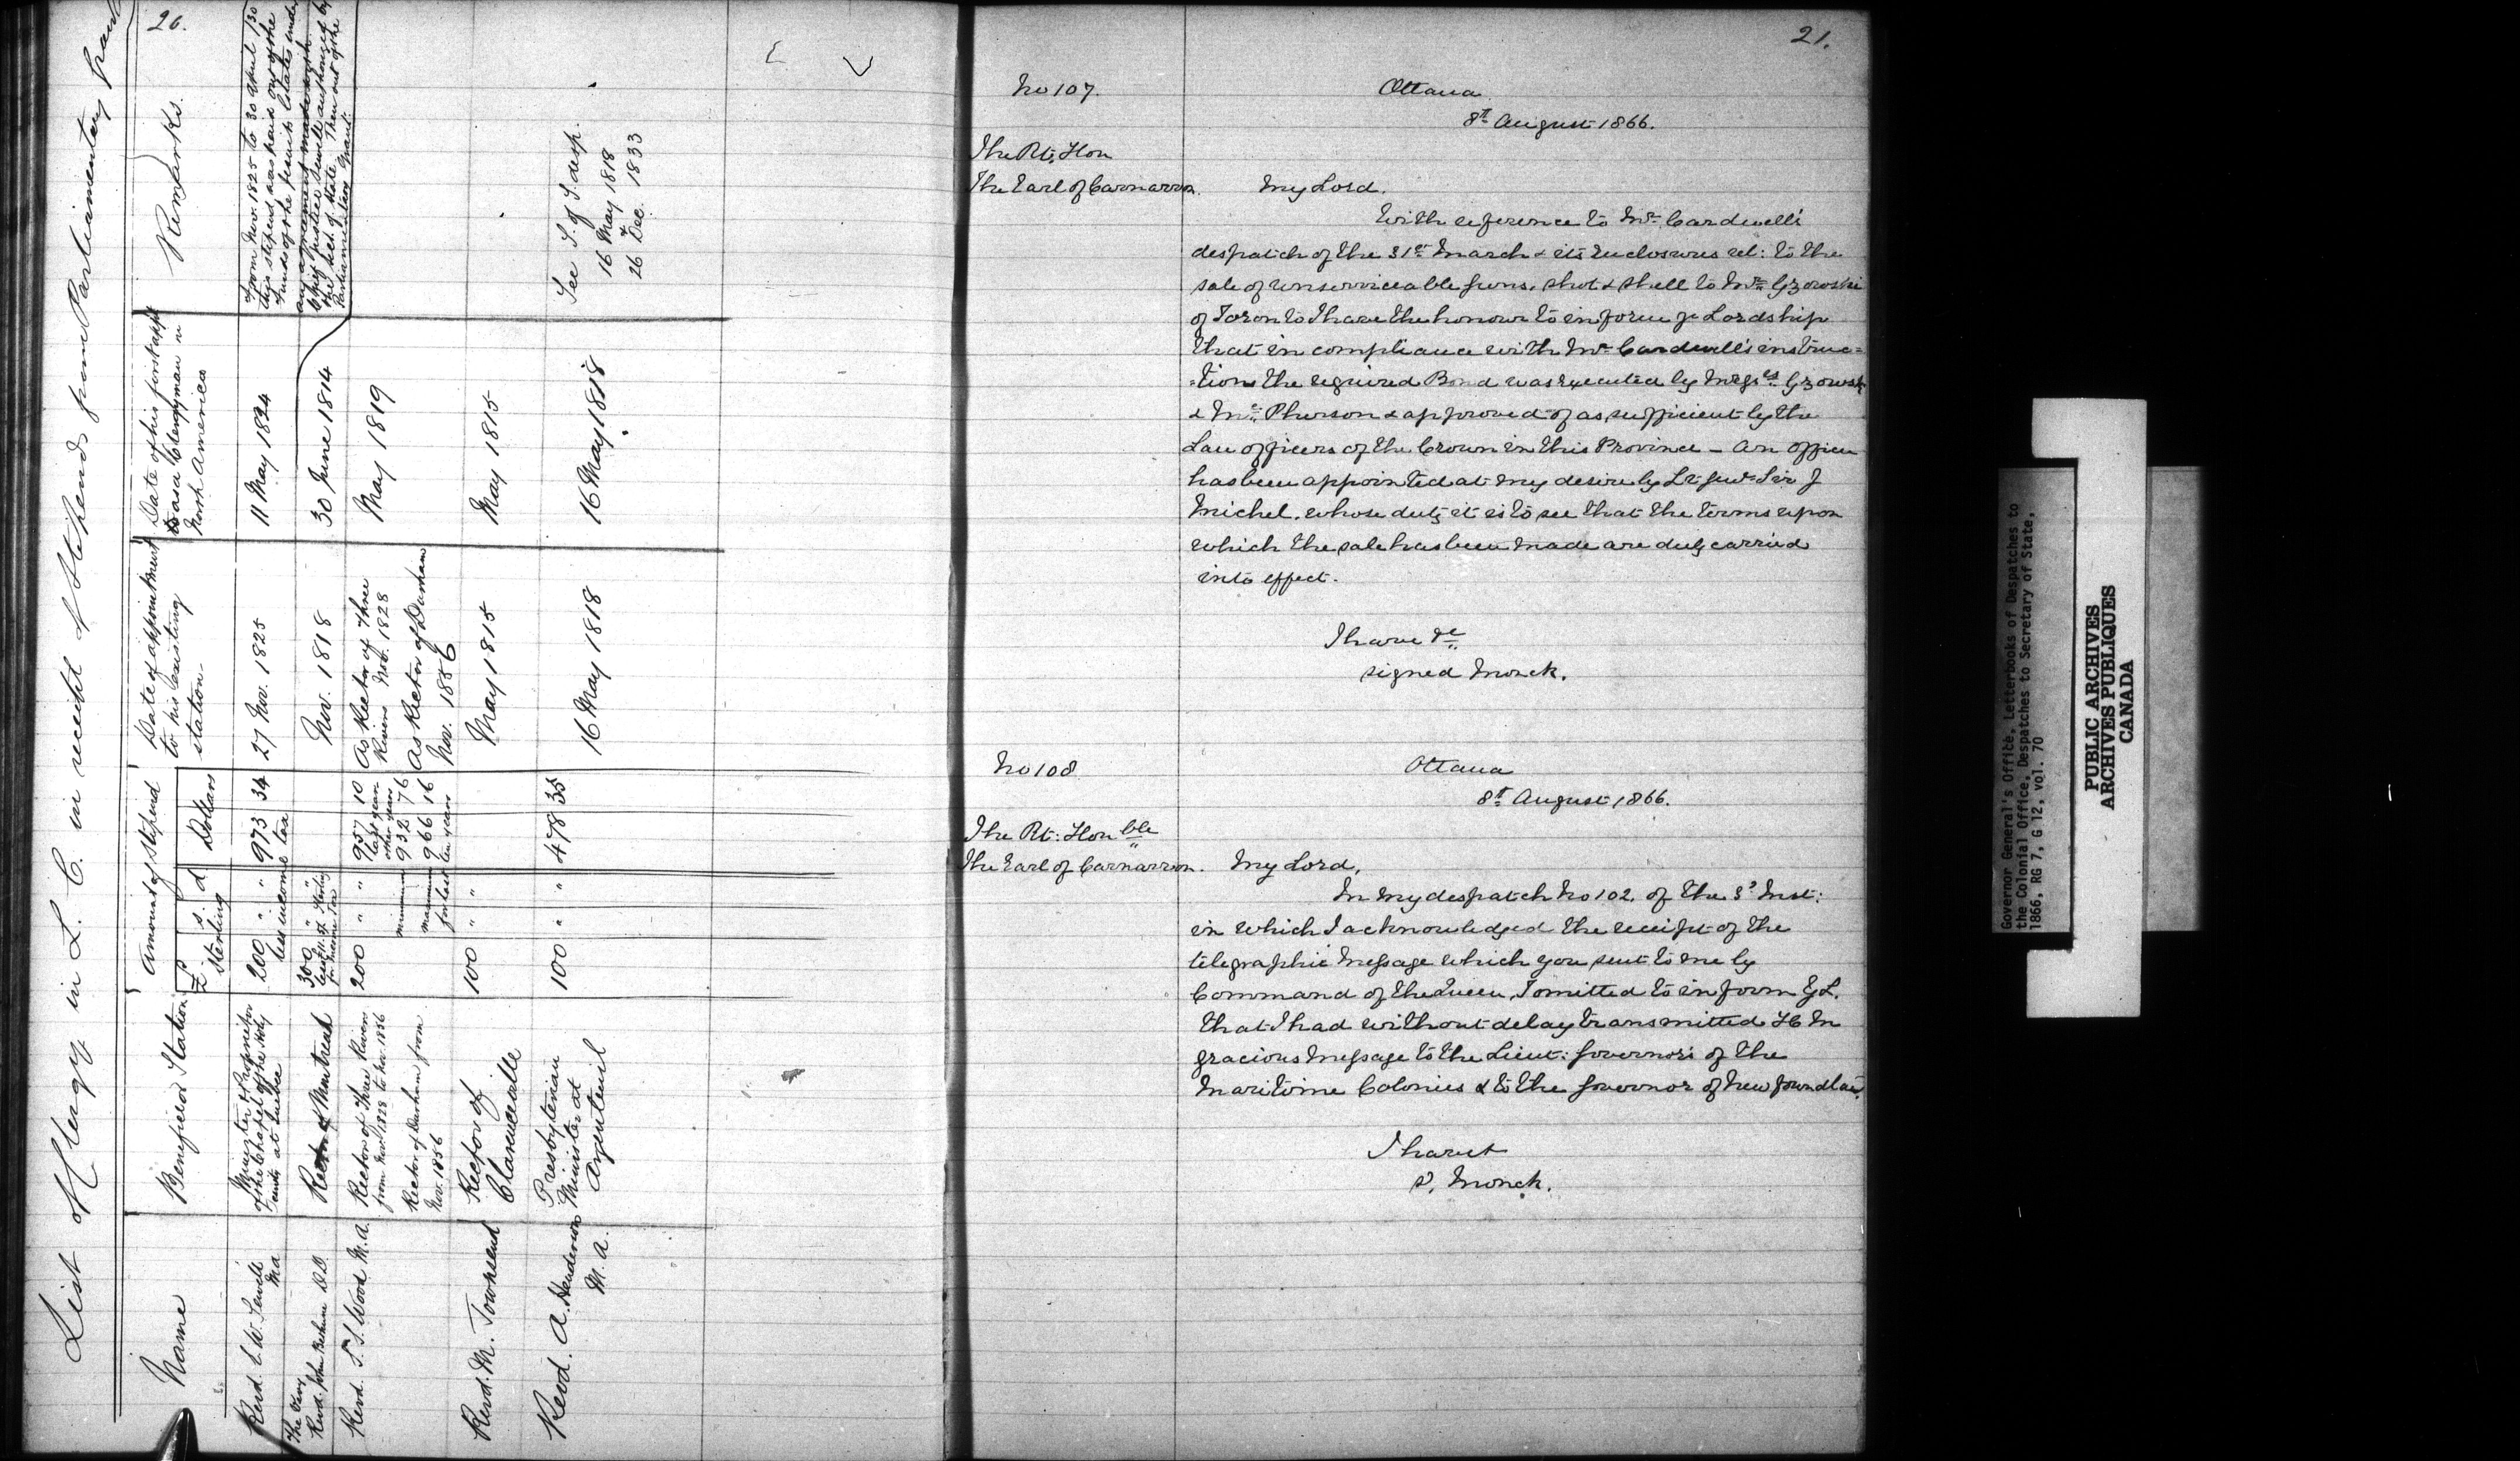 20.
List of Clergy in L. C. in receipt of Stipends from Parliamentary Grant
Name
Benefice or Station
Amount of Stipend
£ s. d
Sterling
Dollars
Date of appointment
to his existing
station
Date of his first appt
as a Clergyman in
North America
Remarks.
Revd. E. W. Sewell
M a
Minister & Proprietor
of the Chapel of the Holy
Trinity at Quebec
200 " "
less income tax
973 34
27 Nov. 1825
11 May 1824
From Nov. 1825 to 30 April 130
this stipend was paid out of the
funds of the Jesuits Estates under
any agreement made with
Chief Justice Sewell authorized by
the Sec. of State. Then out of the
Parliamentary Grant.
The Very
Revd. John Bethune D.D.
Rector of Montreal
300 " "
for Income Tax
Nov. 1818
30 June 1814
Revd. S. S. Wood M.A.
Rector of Three Rivers
from Nov. 1828 to Nov. 1856
Rector of Durham from
Nov. 1856
200 " "
957 10
last year
other years
minimum 932 76
maximum 966 16
for last ten years
As Rector of Three
Rivers Nov. 1828
As Rector of Durham
Nov. 1856
May 1819
Revd. M. Townsend
Rector of
Clarenceville
100 " "
May 1815
May 1815
Revd. A. Henderson
M. A.
Presbyterian
Minister at
Argenteuil
100 " "
478 35
16 May 1818
16 May 1818
See S. of S. desp.
16 May 1818
&
26 Dec. 1833
21.
No 107.
Ottawa
8th August 1866.
The Rt. Hon
The Earl of Carnarvon.
My Lord.
With reference to Mr Cardwell's
despatch of the 31st March & its Enclosures rel: to the
sale of unserviceable guns, shot & shell to Mr Gzowski
of Toronto I have the honour to inform yr Lordship
that in compliance with Mr Cardwell's instruc=
=tions the required Bond was executed by Messrs Gzowski
& McPherson & approved of as sufficient by the
Law officers of the Crown in this Province – An officer
has been appointed at my desire by Lt Genl Sir J
Michel, whose duty it is to see that the terms upon
which the sale has been made are duly carried
into effect.
I have &c
signed Monck.
No 108
Ottawa
8th August 1866.
The Rt: Honble
The Earl of Carnarvon.
My Lord,
In my despatch No 102, of the 3d Inst:
in which I acknowledged the receipt of the
telegraphic Message which you sent to me by
Command of the Queen, I omitted to inform Y L.
that I had without delay transmitted H M
gracious Message to the Lieut: Governors of the
Maritime Colonies & to the Governor of Newfoundland.
I have &
s. Monck.
Governor General's Office, Letterbooks of Despatches to
the Colonial Office, Despatches to Secretary of State,
1866, RG 7, G 12, vol. 70
PUBLIC ARCHIVES
ARCHIVES PUBLIQUES
CANADA